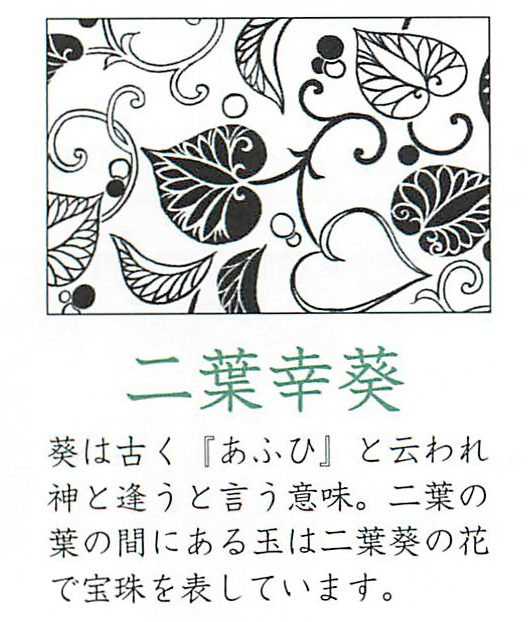 二葉幸葵
葵は古く『あふひ』と云われ
神と逢うと言う意味。二葉の
葉の間にある玉は二葉葵の花
で宝珠を表しています。